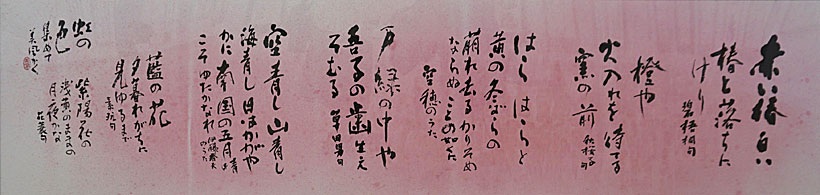 赤い椿白い
椿と落ちに
けり
碧梧桐句
橙や
火入れを待てる
窯の前
秋桜子句
はらはらと
黄の冬ばらの
崩れ去るかりそめ
ならぬことの如くに
空穂のうた
万緑の中や
吾子の歯生え
そむる 草田男句
空青し山青し
海青し日はかがやか
かに南国の五月青
こそゆたかなれ
佐藤春夫
のうた
藍の花
夕暮れがちに
見ゆるまで
紫陽花の
浅黄のままの
月夜かな
花蓑句
虹の
色
集めて
美風かく